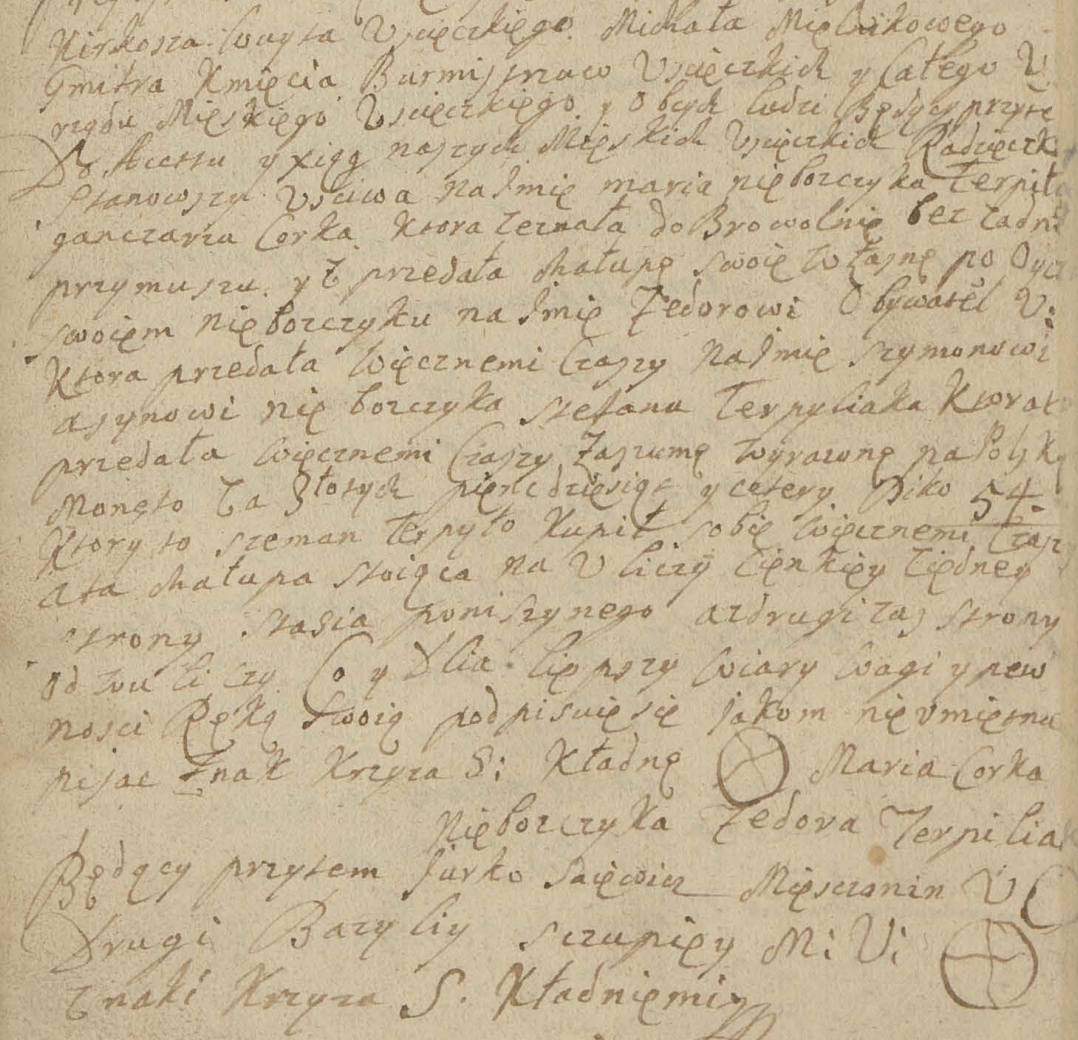 Kirkosza Wuyta Uscięczkięgo Michała Mięlnikowego
Gmitra Kmięcia Burmistrzuw Uscięczkich y Całego U
rzędu Mięskięgo Uscięczkięgo y Obcych ludzi Będących przyte
Do Acettu y xiąg naszych Mięskich Uscięczkich Radzięczk
Stanowszy Usciwa na Imię maria nięborczyka Terpiła
ganczarza Corka Ktora zeznała doBrowolnię bez żadn
przymuszu yż przedała chałupę swoię własnę po Oycu
swoięm nięborczyku na Imię Fedorowi Obywatel U:
Ktora przedała Więcznemi Czaszy na Imię szymonowi
asynowi nię borczyka stefana Terpyliaka Ktorat
przedała Więcznemi Czaszy Zaszumę wyrazonę na Polsk
Monęto za złotych pięncdzięsiąt y cztery Diko 54.
Ktory to szeman Terpyło Kupił sobię Więcznemi Czasz
ata chałupa stoiąca na Uliczy Zięnkięy Ziędney
strony stasia poniszynego azdrugi zas strony
od zuuliczy Co y Dlia liępszy wiary wagi y pew
nosci Ręką Swoią podpisuięsię jakom nięumięina
pisac znak Krzyza S: Kładnę Maria Corka
Nięborczyka Fedora Terpilia
Będący przytem Jurko Saięwicz Mięsczanin U
Drugi Bazyliy sczupięy M: U:
znaki Krzyza S. Kładnięmi